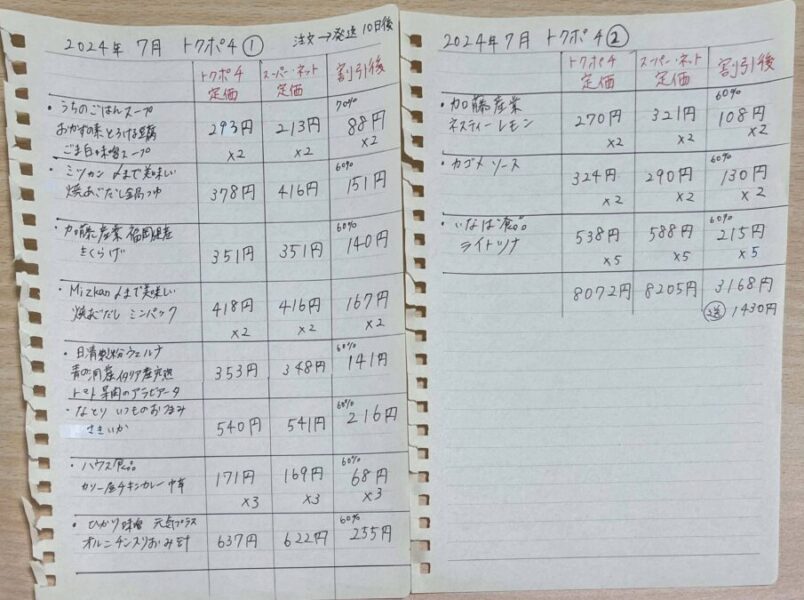 2024年 7月 トクポチ①
注文→発送 10日後
トクポチ 定価 スーパー・ネット 定価 割引後
・うちのごはんスープ
おかずの素 とろける豆腐
ごま白味噌スープ
293円 ×2 213円 ×2 70% 88円 ×2
・ミツカン 〆まで美味しい
焼あごだし鍋つゆ
378円 416円 60% 151円
・加藤産業 福岡県産
きくらげ
351円 351円 60% 140円
・Mizkan 〆まで美味しい
焼あごだし ミニパック
418円 ×2 416円 ×2 167円 ×2
・日清製粉ウェルナ
青の洞窟イタリア産完熟
トマト果肉のアラビアータ
353円 348円 60% 141円
・なとり いつものおつまみ
さきいか
540円 541円 60% 216円
・ハウス食品
カリー屋チキンカレー 中辛
171円 ×3 169円 ×3 60% 68円 ×3
・ひかり味噌 元気プラス
オルニチン入りおみそ汁
637円 622円 60% 255円
2024年 7月 トクポチ②
トクポチ 定価 スーパー・ネット 定価 割引後
・加藤産業
ネスティーレモン
270円 ×2 321円 ×2 60% 108円 ×2
・カゴメ ソース
324円 ×2 290円 ×2 60% 130円 ×2
・いなば食品
ライトツナ
538円 ×5 588円 ×5 60% 215円 ×5
8072円 8205円 3168円
送 1430円